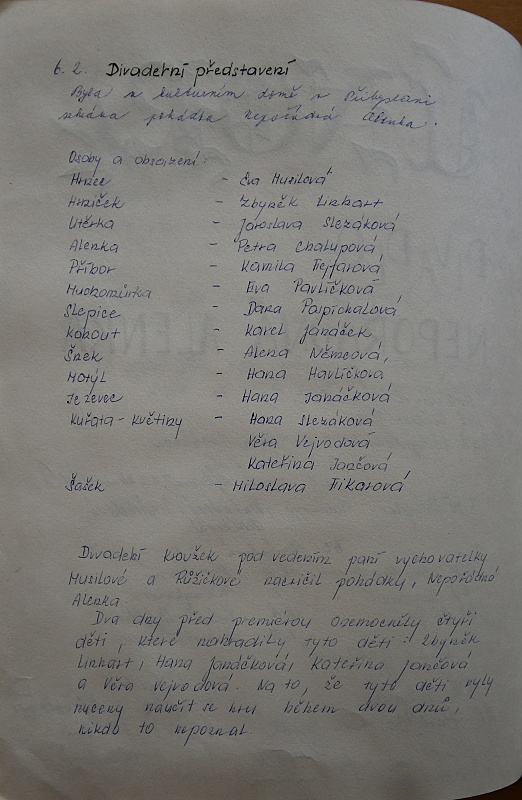 6. 2. Divadelní představení
Byla v kulturním domě v Přibyslavi
sehrána pohádka Nepořádná Alenka.
Osoby a obsazení:
Hrnec - Eva Musilová
Hrníček - Zbyněk Linhart
Utěrka - Jaroslava Slezáková
Alenka - Petra Chalupová
Příbor - Kamila Tejfarová
Muchomůrka - Eva Pavlíčková
Slepice - Dana Pospíchalová
Kohout - Karel Janáček
Šnek - Alena Němcová,
Motýl - Hana Havlíčková
Jezevec - Hana Janáčková
Kuřata - květiny - Hana Slezáková
Věra Vejvodová
Kateřina Jančová
Šašek - Miloslava Fikarová
Divadelní kroužek pod vedením paní vychovatelky
Musilové a Růžičkové nacvičil pohádku, Nepořádná
Alenka.
Dva dny před premiérou onemocněly čtyři
děti, které nahradily tyto děti: Zbyněk
Linhart, Hana Janáčková, Kateřina Jančová
a Věra Vejvodová. Na to, že tyto děti byly
nuceny naučit se hru během dvou dnů,
nikdo to nepoznal.